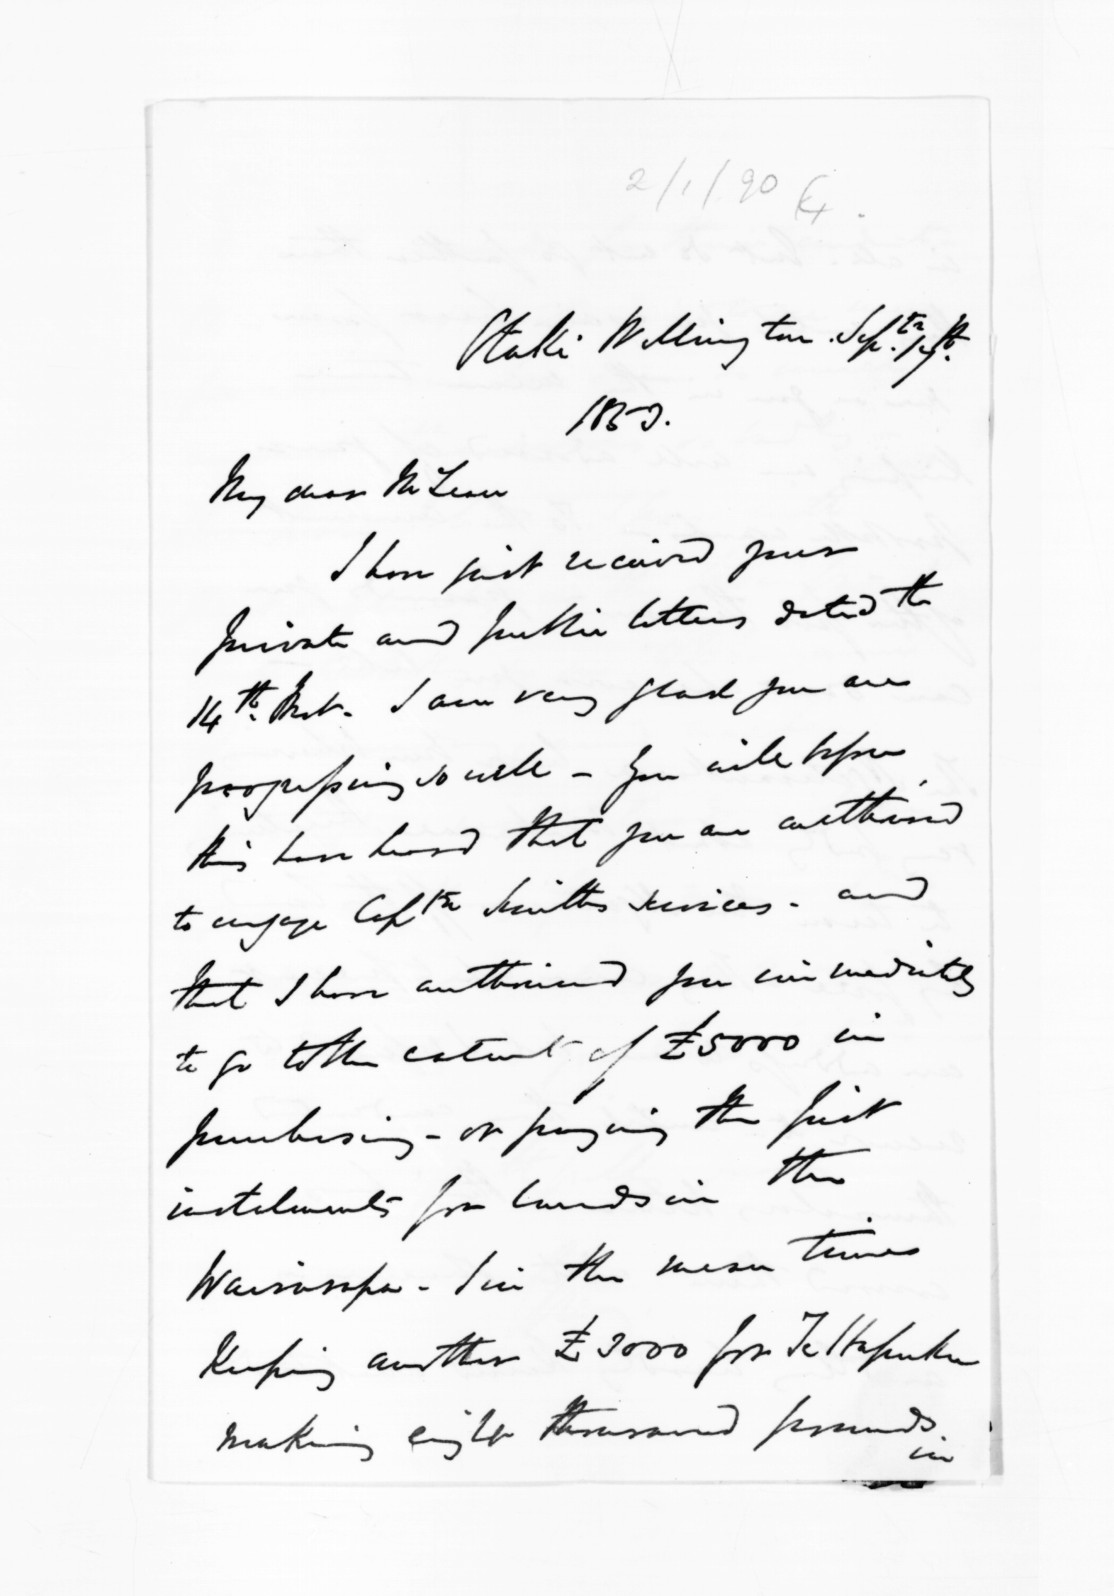 2/1/90
Otaki Wellington. Sepr. 17th.
1853.
My dear McLean
I have just received your
private and public letters dated the
14th. Inst. I am very glad you are
progressing so well - You will before
this have heard that you are authorised
to engage Captn Smiths services - and
that I have authorised you immediately
to go to the extent of £5000 in
purchasing - or paying the first
instalments for lands in the
Wairarapa - I in the mean time
Keeping another £3000 for Te Hapuku
making eight thousand pounds
in